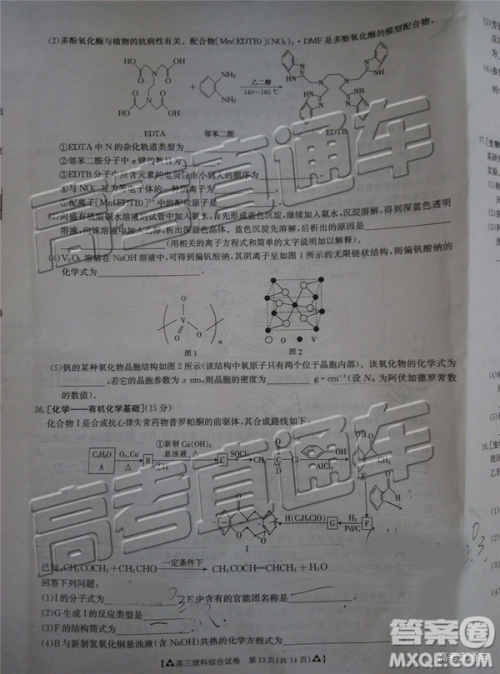 (2)多酚氧化酶与植物的抗病性有关。配合物[Mn(EDTB)](NO₃)₂·DMF是多酚氧化酶的模型配合物。
HO OH
HO OH
NH₂
NH₂
乙二醇
EDTA 邻苯二胺 EDTB
①EDTA中N的杂化轨道类型为
②邻苯二胺分子中σ键的数目为
③EDTB分子中所含元素的电负性由小到大的顺序为
④与NO₃⁻互为等电子体的一种阴离子为
⑤配离子[Mn(EDTB)]²⁺中的配位原子是
(3)向盛有硫酸铜水溶液的试管中加入氨水,首先形成蓝色沉淀,继续加入氨水,沉淀溶解,得到深蓝色透明
(用相关的离子方程式和简单的文字说明加以解释)。
(4)V₂O₅溶解在NaOH溶液中,可得到偏钒酸钠,其阴离子呈如图1所示的无限链状结构,则偏钒酸钠的
化学式为
O V
图1 图2
(5)钒的某种氧化物晶胞结构如图2所示(该结构中氧原子只有两个位于晶胞内部)。该氧化物的化学式为
,若它的晶胞参数为x nm,则晶胞的密度为 g·cm⁻³(设N_A为阿伏加德罗常数
的数值)。
36.[化学——有机化学基础](15分)
化合物I是合成抗心律失常药物普罗帕酮的前驱体,其合成路线如下。
C₃H₈O A O₂,Cu △ B ①新制Cu(OH)₂ 悬浊液,△ C SOCl₂
AlCl₃
I H(C₃H₅ClO) G H₂ Pd/C F
已知:CH₃COCH₃+CH₃CHO 一定条件下 CH₃COCH=CHCH₃+H₂O
回答下列问题:
(1)I的分子式为 ,E中含有的官能团名称是
(2)G生成I的反应类型是
(3)F的结构简式为
(4)B与新制氢氧化铜悬浊液(含NaOH)共热的化学方程式为
【高三理科综合试卷 第13页(共14页)】
高考直通车
高考直通车
高考直通车
答案圈
MXQE.COM